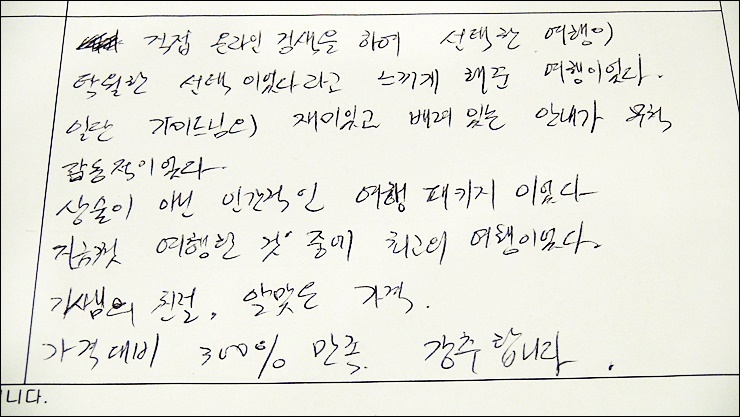 직접 온라인 검색을 하여 선택한 여행이
탁월한 선택이었다라고 느끼게 해준 여행이었다.
일단 가이드님의 재미있고 배려있는 안내가 무척
감동적이었다.
상술이 아닌 인간적인 여행 패키지 이었다
지금껏 여행한 것 중에 최고의 여행이었다.
기사님의 친절, 알맞은 가격.
가격대비 300% 만족. 강추합니다.
니다.